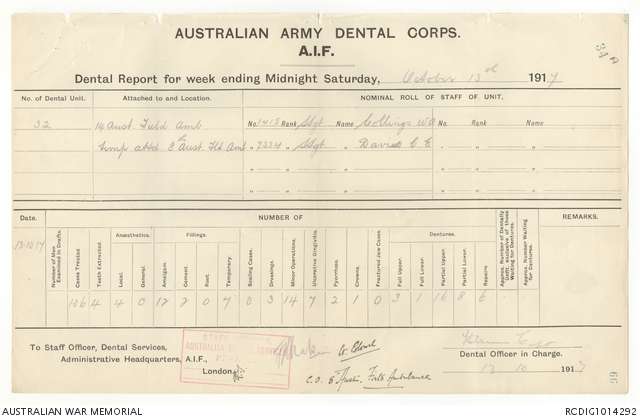 AUSTRALIAN ARMY DENTAL CORPS.
A.I.F.
Dental Report for week ending Midnight Saturday, October 13th 1917
No. of Dental Unit. Attached to and Location. NOMINAL ROLL OF STAFF OF UNIT.
32 14 Aust. Field Amb No. 1415 Rank SSgt Name Collings No. Rank Name
8th Aust Fld Amb " 7334 " SSgt " Davies C E " " "
" " " " " "
" " " " " "
Date. NUMBER OF REMARKS.
Anaesthetics. Fillings. Dentures.
Number of Men Examined in Drafts. Cases Treated Teeth Extracted Local. General. Amalgam Cement Root. Temporary. Scaling Cases. Dressings. Minor Operations. Ulcerative Gingivitis. Pyorrhoea. Crowns. Fractured Jaw Cases Full Upper. Full Lower. Partial Upper. Partial Lower. Repairs Approx. Number of Dentally Unfit, exclusive of those Waiting for Dentures. Approx. Number Waiting for Dentures.
13.10.17 106 4 4 0 0 7 0 3 14 7 2 1 0 3 1 16 8 6
To Staff Officer, Dental Services,
Administrative Headquarters, A.I.F.,
London.
Lt Colonel
C.O. 8th Austn. Field Ambulance
Capt
Dental Officer in Charge.
13 10 1917
AUSTRALIAN WAR MEMORIAL RCDIG1014292